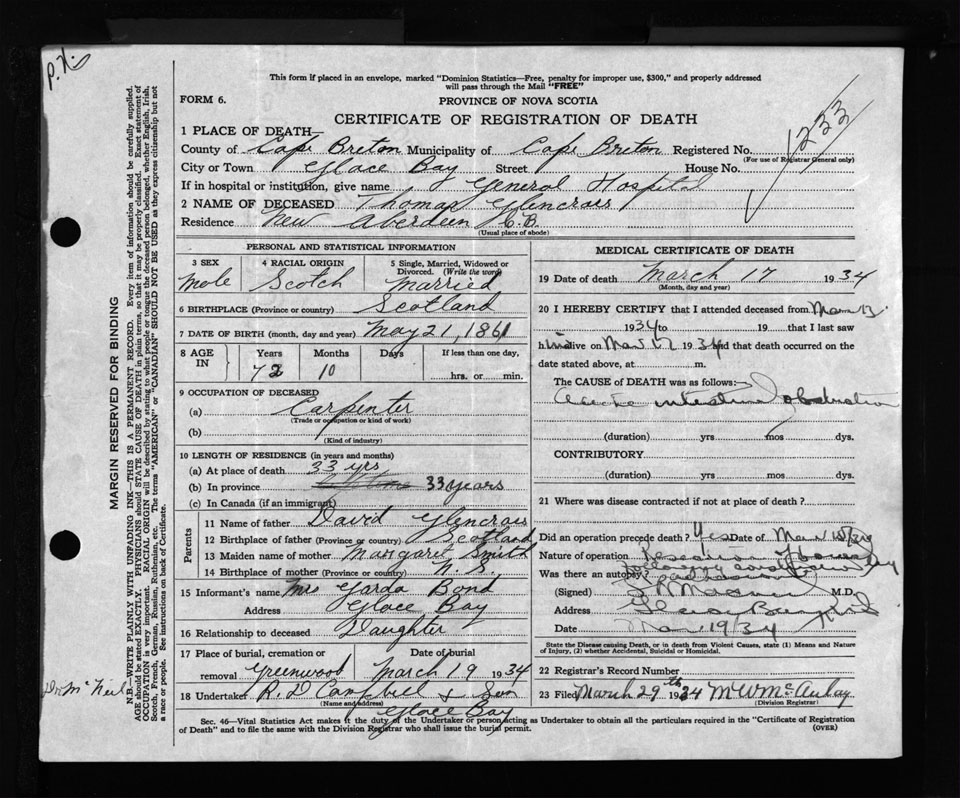 P.X.
This form if placed in an envelope, marked "Dominion Statistics—Free, penalty for improper use, $300," and properly addressed
will pass through the Mail "FREE"
FORM 6.
PROVINCE OF NOVA SCOTIA
CERTIFICATE OF REGISTRATION OF DEATH
1233
1 PLACE OF DEATH—
County of Cape Breton Municipality of Cape Breton Registered No.
(For use of Registrar General only)
City or Town Glace Bay Street House No.
If in hospital or institution, give name General Hospital
2 NAME OF DECEASED Thomas Glencross
Residence New Aberdeen C.B.
(Usual place of abode)
PERSONAL AND STATISTICAL INFORMATION
3 SEX
4 RACIAL ORIGIN
5 Single, Married, Widowed or
Divorced. (Write the word)
Male Scotch Married
6 BIRTHPLACE (Province or country) Scotland
7 DATE OF BIRTH (month, day and year) May 21, 1861
8 AGE IN
Years Months Days If less than one day,
72 10
hrs. or min.
9 OCCUPATION OF DECEASED
(a) Carpenter
(Trade or occupation or kind of work)
(b)
(Kind of industry)
10 LENGTH OF RESIDENCE (in years and months)
(a) At place of death 33 yrs
(b) In province 33 years
(c) In Canada (if an immigrant)
Parents
11 Name of father David Glencross
12 Birthplace of father (Province or country) Scotland
13 Maiden name of mother Margaret Smith
14 Birthplace of mother (Province or country) N. S.
15 Informant's name Mrs Garda Bond
Address Glace Bay
16 Relationship to deceased Daughter
17 Place of burial, cremation or removal Greenwood
Date of burial
March 19 1934
18 Undertaker R. D Campbell & Son
(Name and address)
Glace Bay
MEDICAL CERTIFICATE OF DEATH
19 Date of death March 17 1934
(Month, day and year)
20 I HEREBY CERTIFY that I attended deceased from Mar 13
1934 to 19 that I last saw
him alive on Mar 17 1934 and that death occurred on the
date stated above, at m.
The CAUSE of DEATH was as follows:
Acute intestinal obstruction
(duration) yrs mos dys.
CONTRIBUTORY
(duration) yrs mos dys.
21 Where was disease contracted if not at place of death?
Did an operation precede death? Yes Date of Mar
Nature of operation Resection of bowel
Was there an autopsy?
(Signed) M.D.
Address Glace Bay
Date Mar 19/34
State the Disease causing Death, or in death from Violent Causes, state (1) Means and Nature
of Injury, (2) whether Accidental, Suicidal or Homicidal.
22 Registrar's Record Number
23 Filed March 29th 1934 M W McAulay
(Division Registrar)
Sec. 46—Vital Statistics Act makes it the duty of the Undertaker or person acting as Undertaker to obtain all the particulars required in the "Certificate of Registration
of Death" and to file the same with the Division Registrar who shall issue the burial permit. (OVER)
MARGIN RESERVED FOR BINDING
N.B.—WRITE PLAINLY WITH UNFADING INK—THIS IS A PERMANENT RECORD. Every item of information should be carefully supplied.
AGE should be stated EXACTLY. PHYSICIANS should STATE CAUSE OF DEATH in plain terms, so that it may be properly classified. Exact statement of
OCCUPATION is very important. RACIAL ORIGIN will be described by stating to what people or tongue the deceased person belonged, whether English, Irish,
Scotch, French, German, Russian, Ruthenian, etc. The terms "AMERICAN" or "CANADIAN" SHOULD NOT BE USED as they express citizenship but not
a race or people. See instructions on back of Certificate.
Dr. McNeil